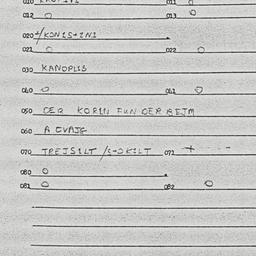 010 011
012 O 013 O
020 +/KONISTINI
021 O 022 O
030 KANOPLIS
040 O 041 O
050 DER KORIN FUN DER BEJM
060 A CVAJG
070 TREJSILT / 071 +
080 O
081 O 082 O